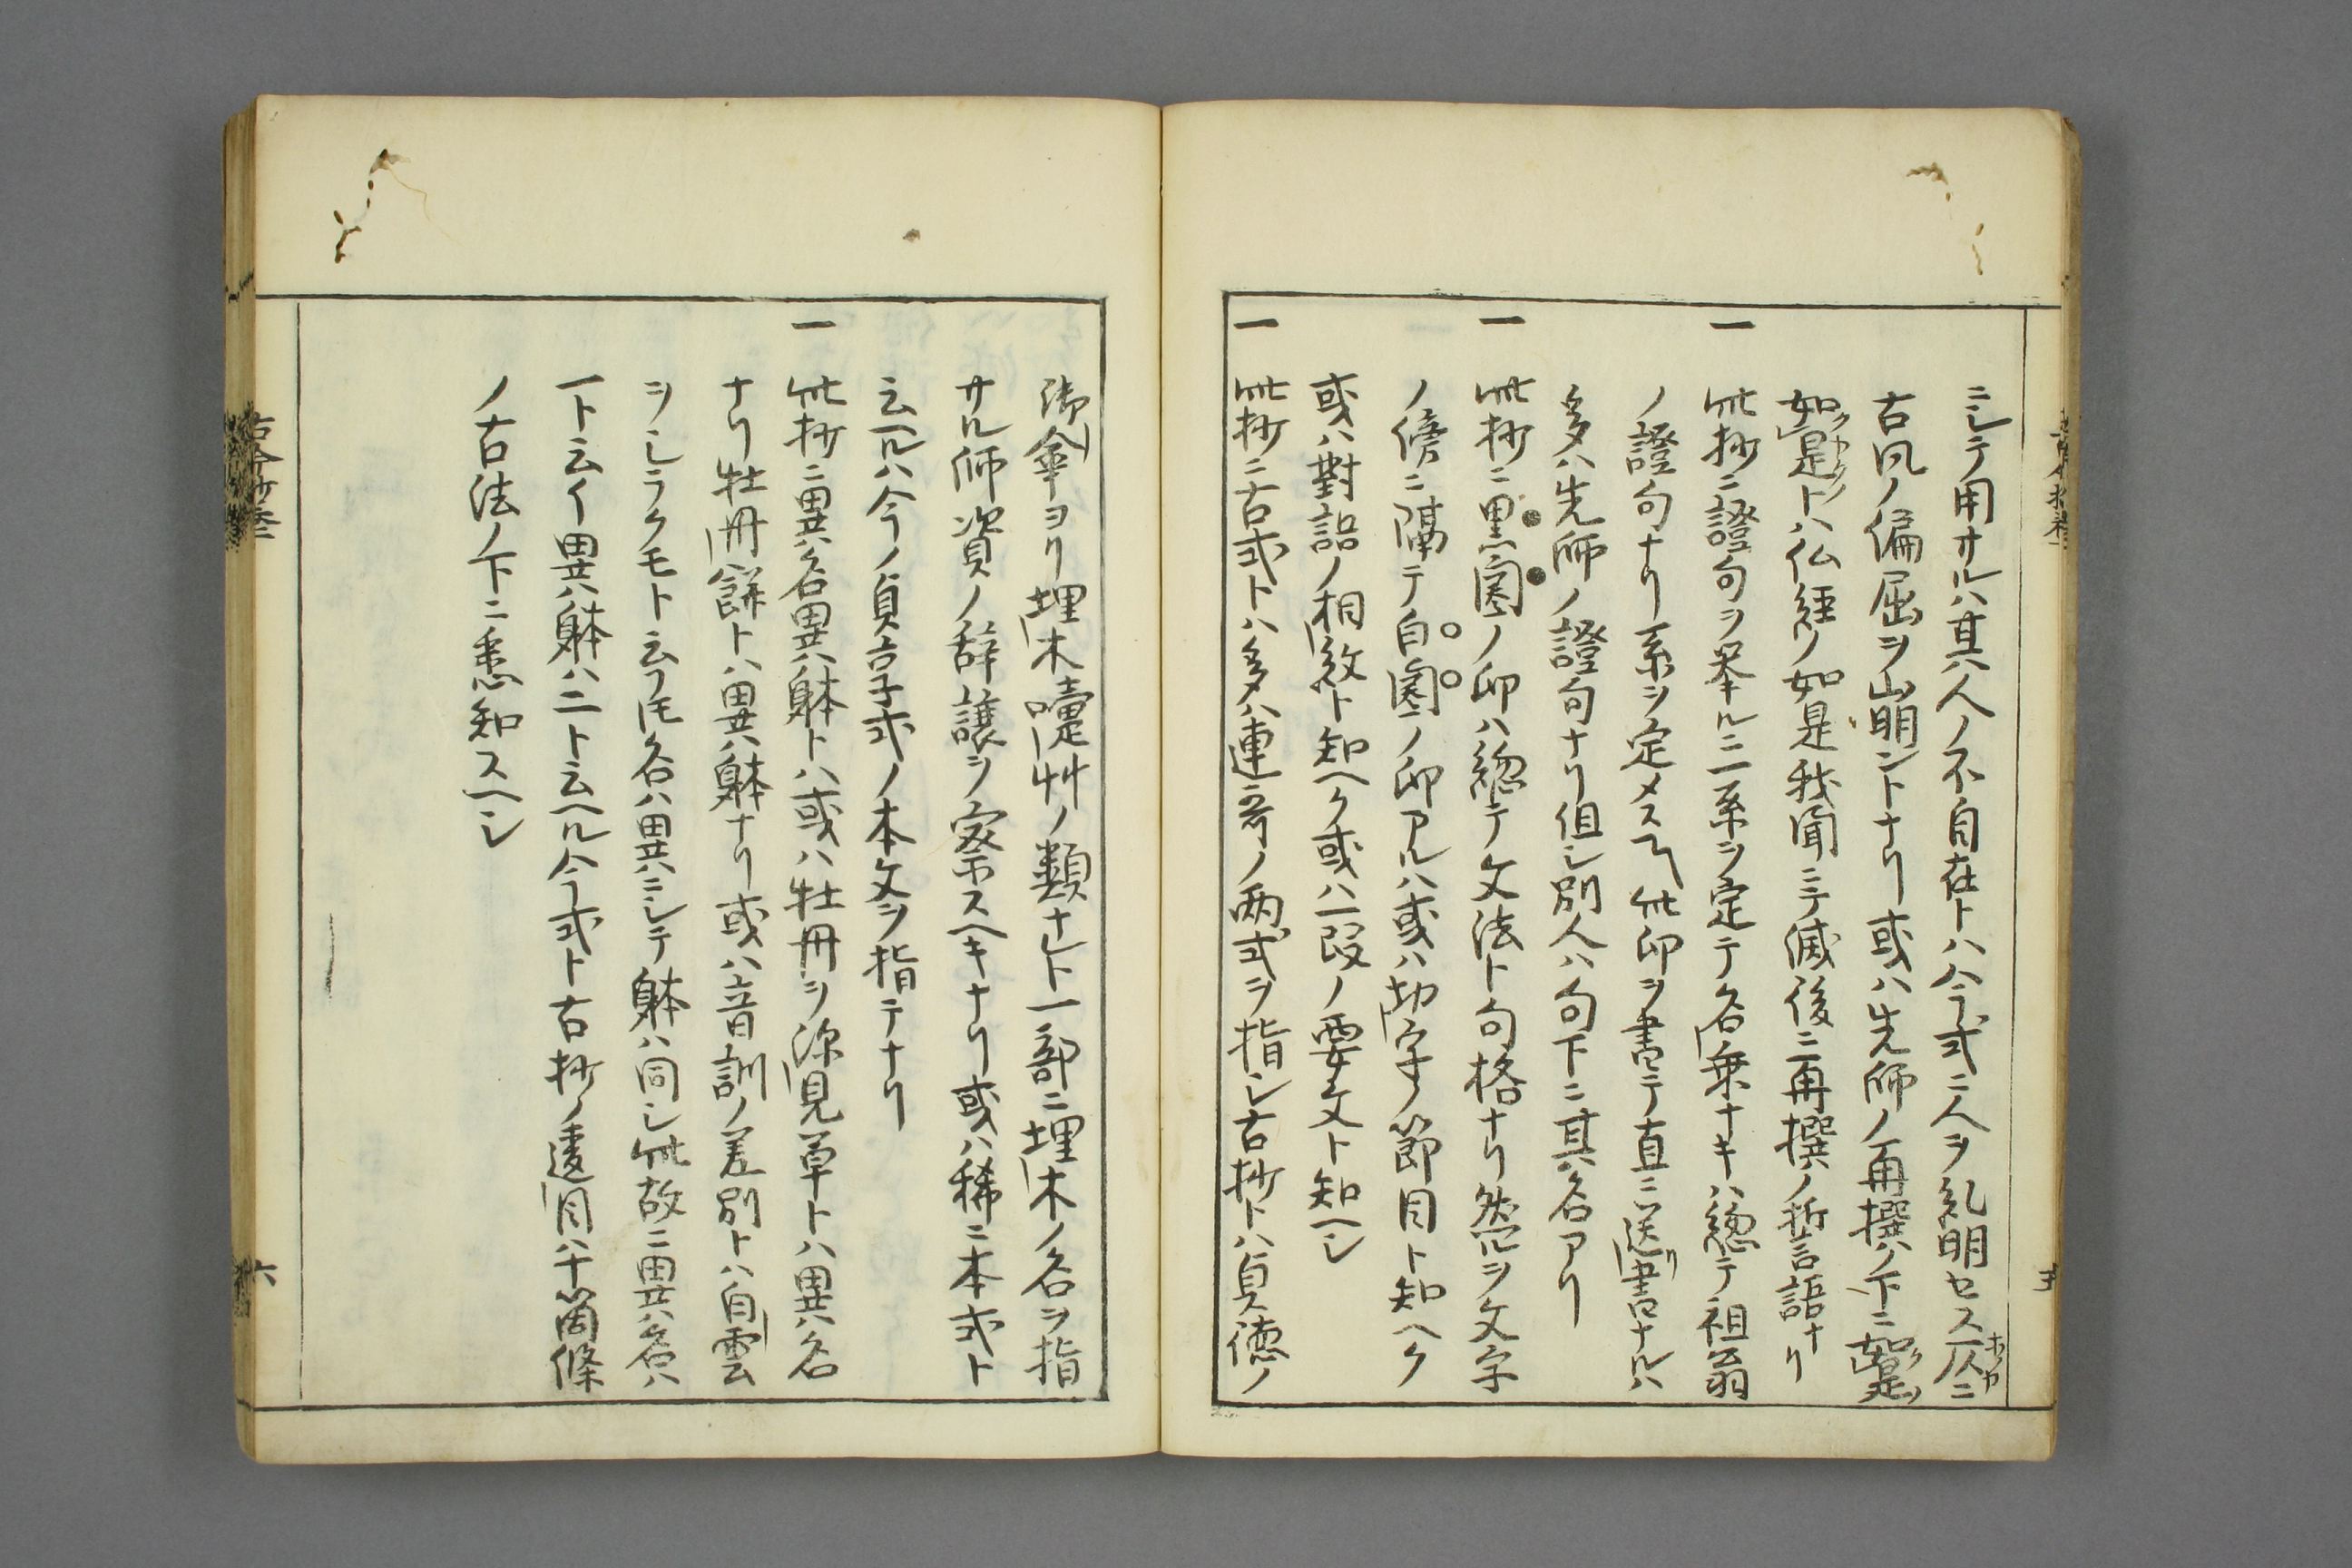 ニシテ用サルハ其人ノ不自在トハ今式ニ人ヲ糺明セス仄ニ
古風ノ偏屈ヲ明ントナリ或ハ先師ノ再撰ノ下ニ如是
如是トハ仏経ノ如是我聞ニテ滅後ニ再撰ノ誓語ナリ
一 此抄ニ證句ヲ挙ルニ一系ヲ定テ名乗ナキハ總テ祖翁
ノ證句ナリ一系ヲ定メスヘ此印ヲ書テ直ニ送書ナルハ
多ハ先師ノ證句ナリ但シ別人ハ句下ニ其名アリ
一 此抄ニ黒圏ノ印ハ總テ文法ト句格ナリ然ルヲ文字
ノ傍ニ隔テ白圏ノ印アルハ或ハ切字ノ節目ト知ヘク
或ハ對語ノ相紋ト知ヘク或ハ一段ノ要文ト知ヘシ
一 此抄ニ古式トハ多ハ連哥ノ両式ヲ指シ古抄トハ貞徳ノ
御傘ヨリ埋木嚏艸ノ類ナレト一部ニ埋木ノ名ヲ指
サル師資ノ辞譲ヲ察スヘキナリ或ハ稀ニ本式ト
云ヘルハ今ノ貞享式ノ本文ヲ指テナリ
一 此抄ニ異名異躰トハ或ハ牡丹ヲ深見草トハ異名
ナリ牡丹餅トハ異躰ナリ或ハ音訓ノ差別トハ白雲
ヲシラクモト云フ𪜈名ハ異ニシテ躰ハ同シ此故ニ異名ハ
一ト云イ異躰ハ二ト云ヘル今式ト古抄ノ違目ハ十箇條
ノ古法ノ下ニ悉知スヘシ
六